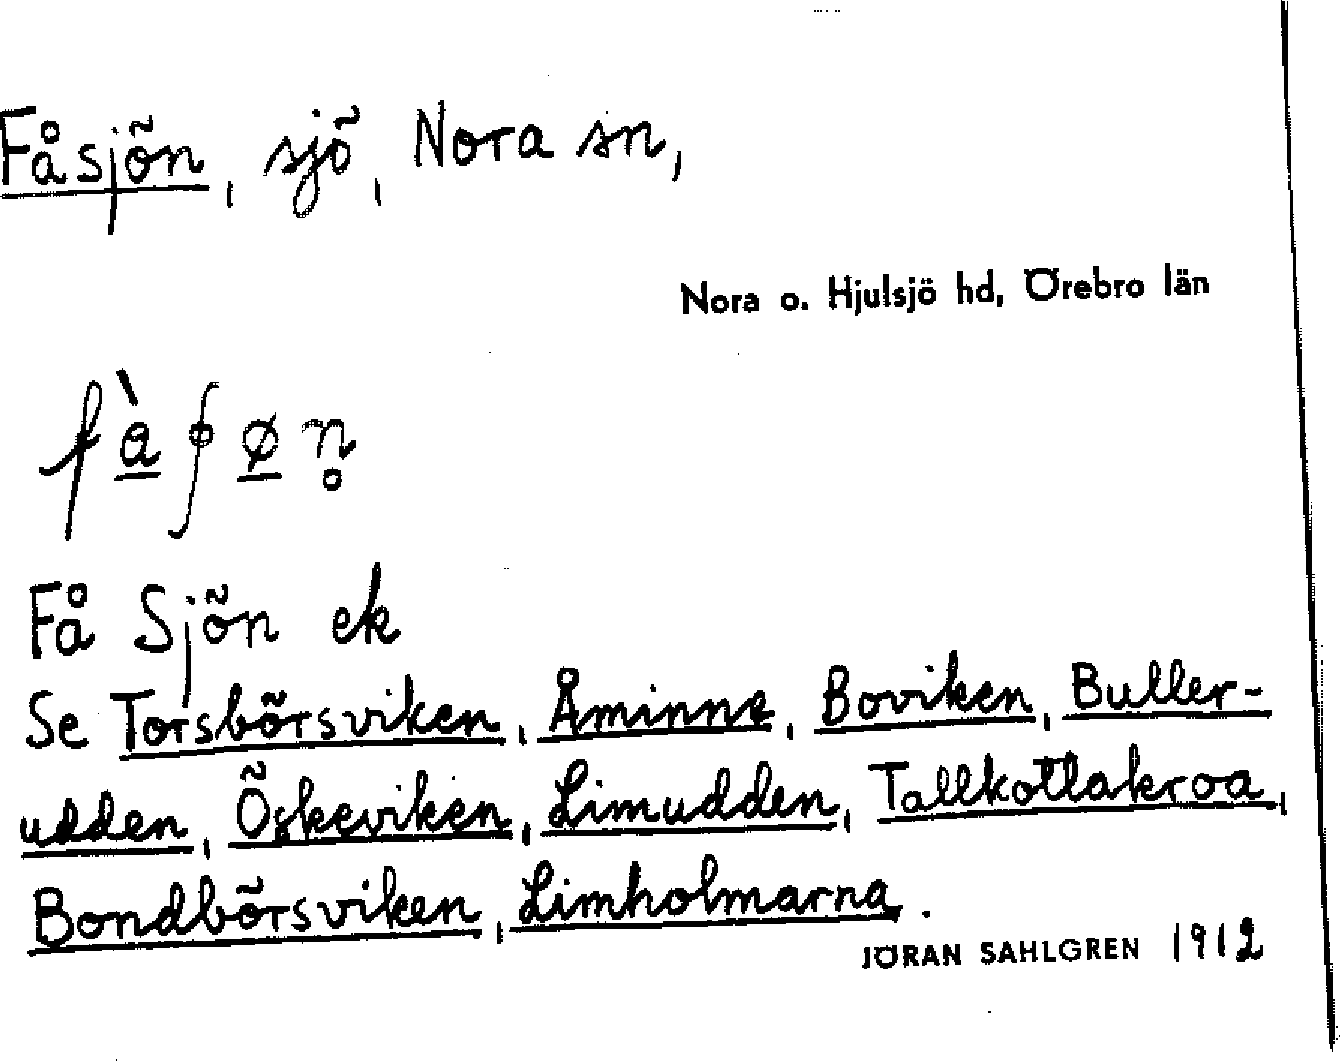 Fåsjön, sjö, Nora sn,
Nora o. Hjulsjö hd, Örebro län
Få Sjön ek
Se Torsbörsviken, Åminne, Boviken, Buller-
udden, Öskeviken, Limudden, Tallkottakroa,
Bondbörsviken, Limholmarna.
JÖRAN SAHLGREN 1912